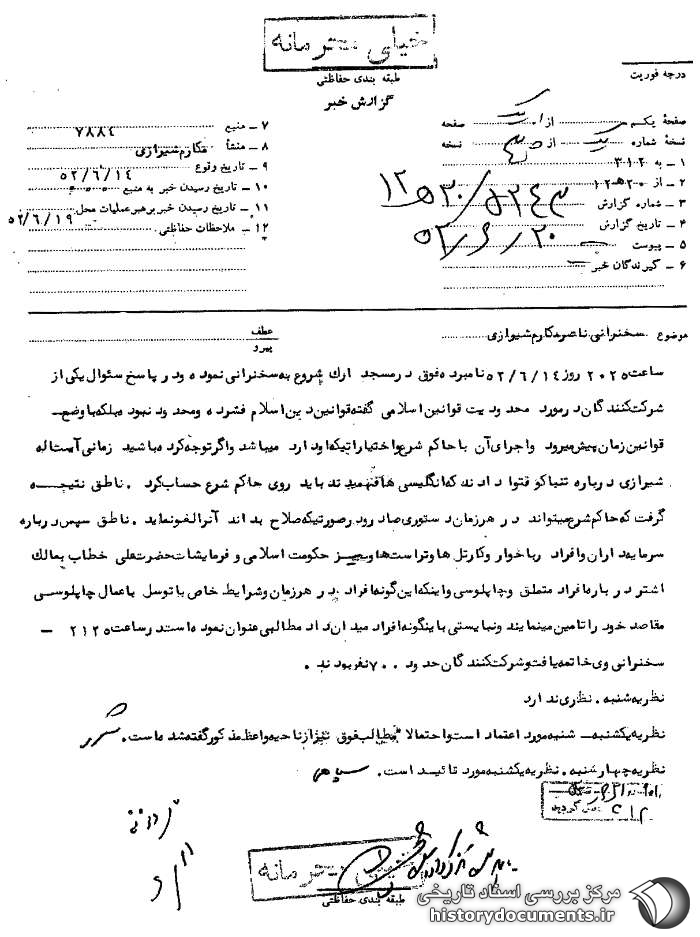 خیلی محرمانه
طبقه بندی حفاظتی
گزارش خبر
درجه فوریت
صفحه یکم از یک صفحه
نسخه شماره یک از نسخه
۱ ـ به ۳۱۲
۲ ـ از ۲۰ه۱۲
۳ ـ شماره گزارش
۴ ـ تاریخ گزارش ۵۲/۶/۲۰
۵ ـ پیوست
۶ ـ گیرندگان خبر
۷ ـ منبع ۷۸۸۴
۸ ـ منشأ مکارم شیرازی
۹ ـ تاریخ وقوع ۵۲/۶/۱۴
۱۰ ـ تاریخ رسیدن خبر به منبع
۱۱ ـ تاریخ رسیدن خبر برهبر عملیات محل ۵۲/۶/۱۹
۱۲ ـ ملاحظات حفاظتی
موضوع سخنرانی ناصر مکارم شیرازی
عطف
پیرو
ساعت ۲۰۲۵ روز ۵۲/۶/۱۴ نامبرده فوق در مسجد ارك شروع به سخنرانی نموده و در پاسخ سئوال یکی از
شرکت کنندگان در مورد محدودیت قوانین اسلامی گفته قوانین دین اسلام فشرده و محدود نبوده بلکه با وضع
قوانین زمان پیش میرود و اجرای آن با حاکم شرع و اختیاراتیکه او دارد میباشد و اگر توجه کرده باشید زمانی آیت اله
شیرازی درباره تنباکو فتوا دادند که انگلیسی ها فهمیدند باید روی حاکم شرع حساب کرد . ناطق نتیجه
گرفت که حاکم شرع میتواند در هر زمان دستوری صادر و در صورتیکه صلاح بداند آنرا لغو نماید . ناطق سپس درباره
سرمایه داران و افراد رباخوار و کارتل ها و تراست ها و نیز حکومت اسلامی و فرمایشات حضرت علی خطاب بمالك
اشتر درباره افراد متملق و چاپلوسی و اینکه این گونه افراد در هر زمان و شرایط خاص با توسل باعمال چاپلوسی
مقاصد خود را تامین مینمایند و نبایستی باینگونه افراد میدان داد مطالبی عنوان نموده است در ساعت ۲۱۲۵ ـ
سخنرانی وی خاتمه یافت و شرکت کنندگان حدود ۷۰۰ نفر بودند .
نظریه شنبه . نظری ندارد
نظریه یکشنبه ـ شنبه مورد اعتماد است و احتمالا مطالب فوق نیز از ناحیه واعظ مذکور گفته شده است .
نظریه چهارشنبه . نظریه یکشنبه مورد تائید است . سپاهی
خیلی محرمانه
طبقه بندی حفاظتی
مرکز بررسی اسناد تاریخی
historydocuments.ir